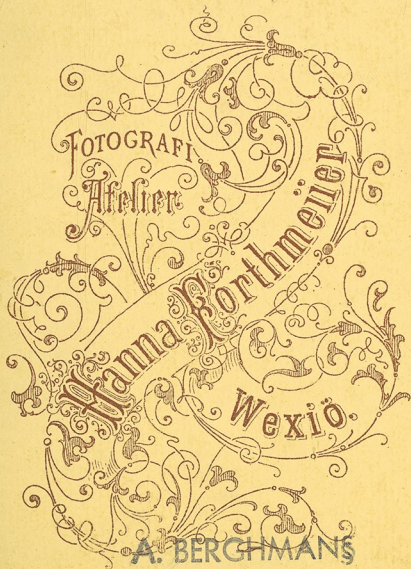 FOTOGRAFI
Atelier
Hanna Forthmeiier
Wexiö.
A. BERGHMANS